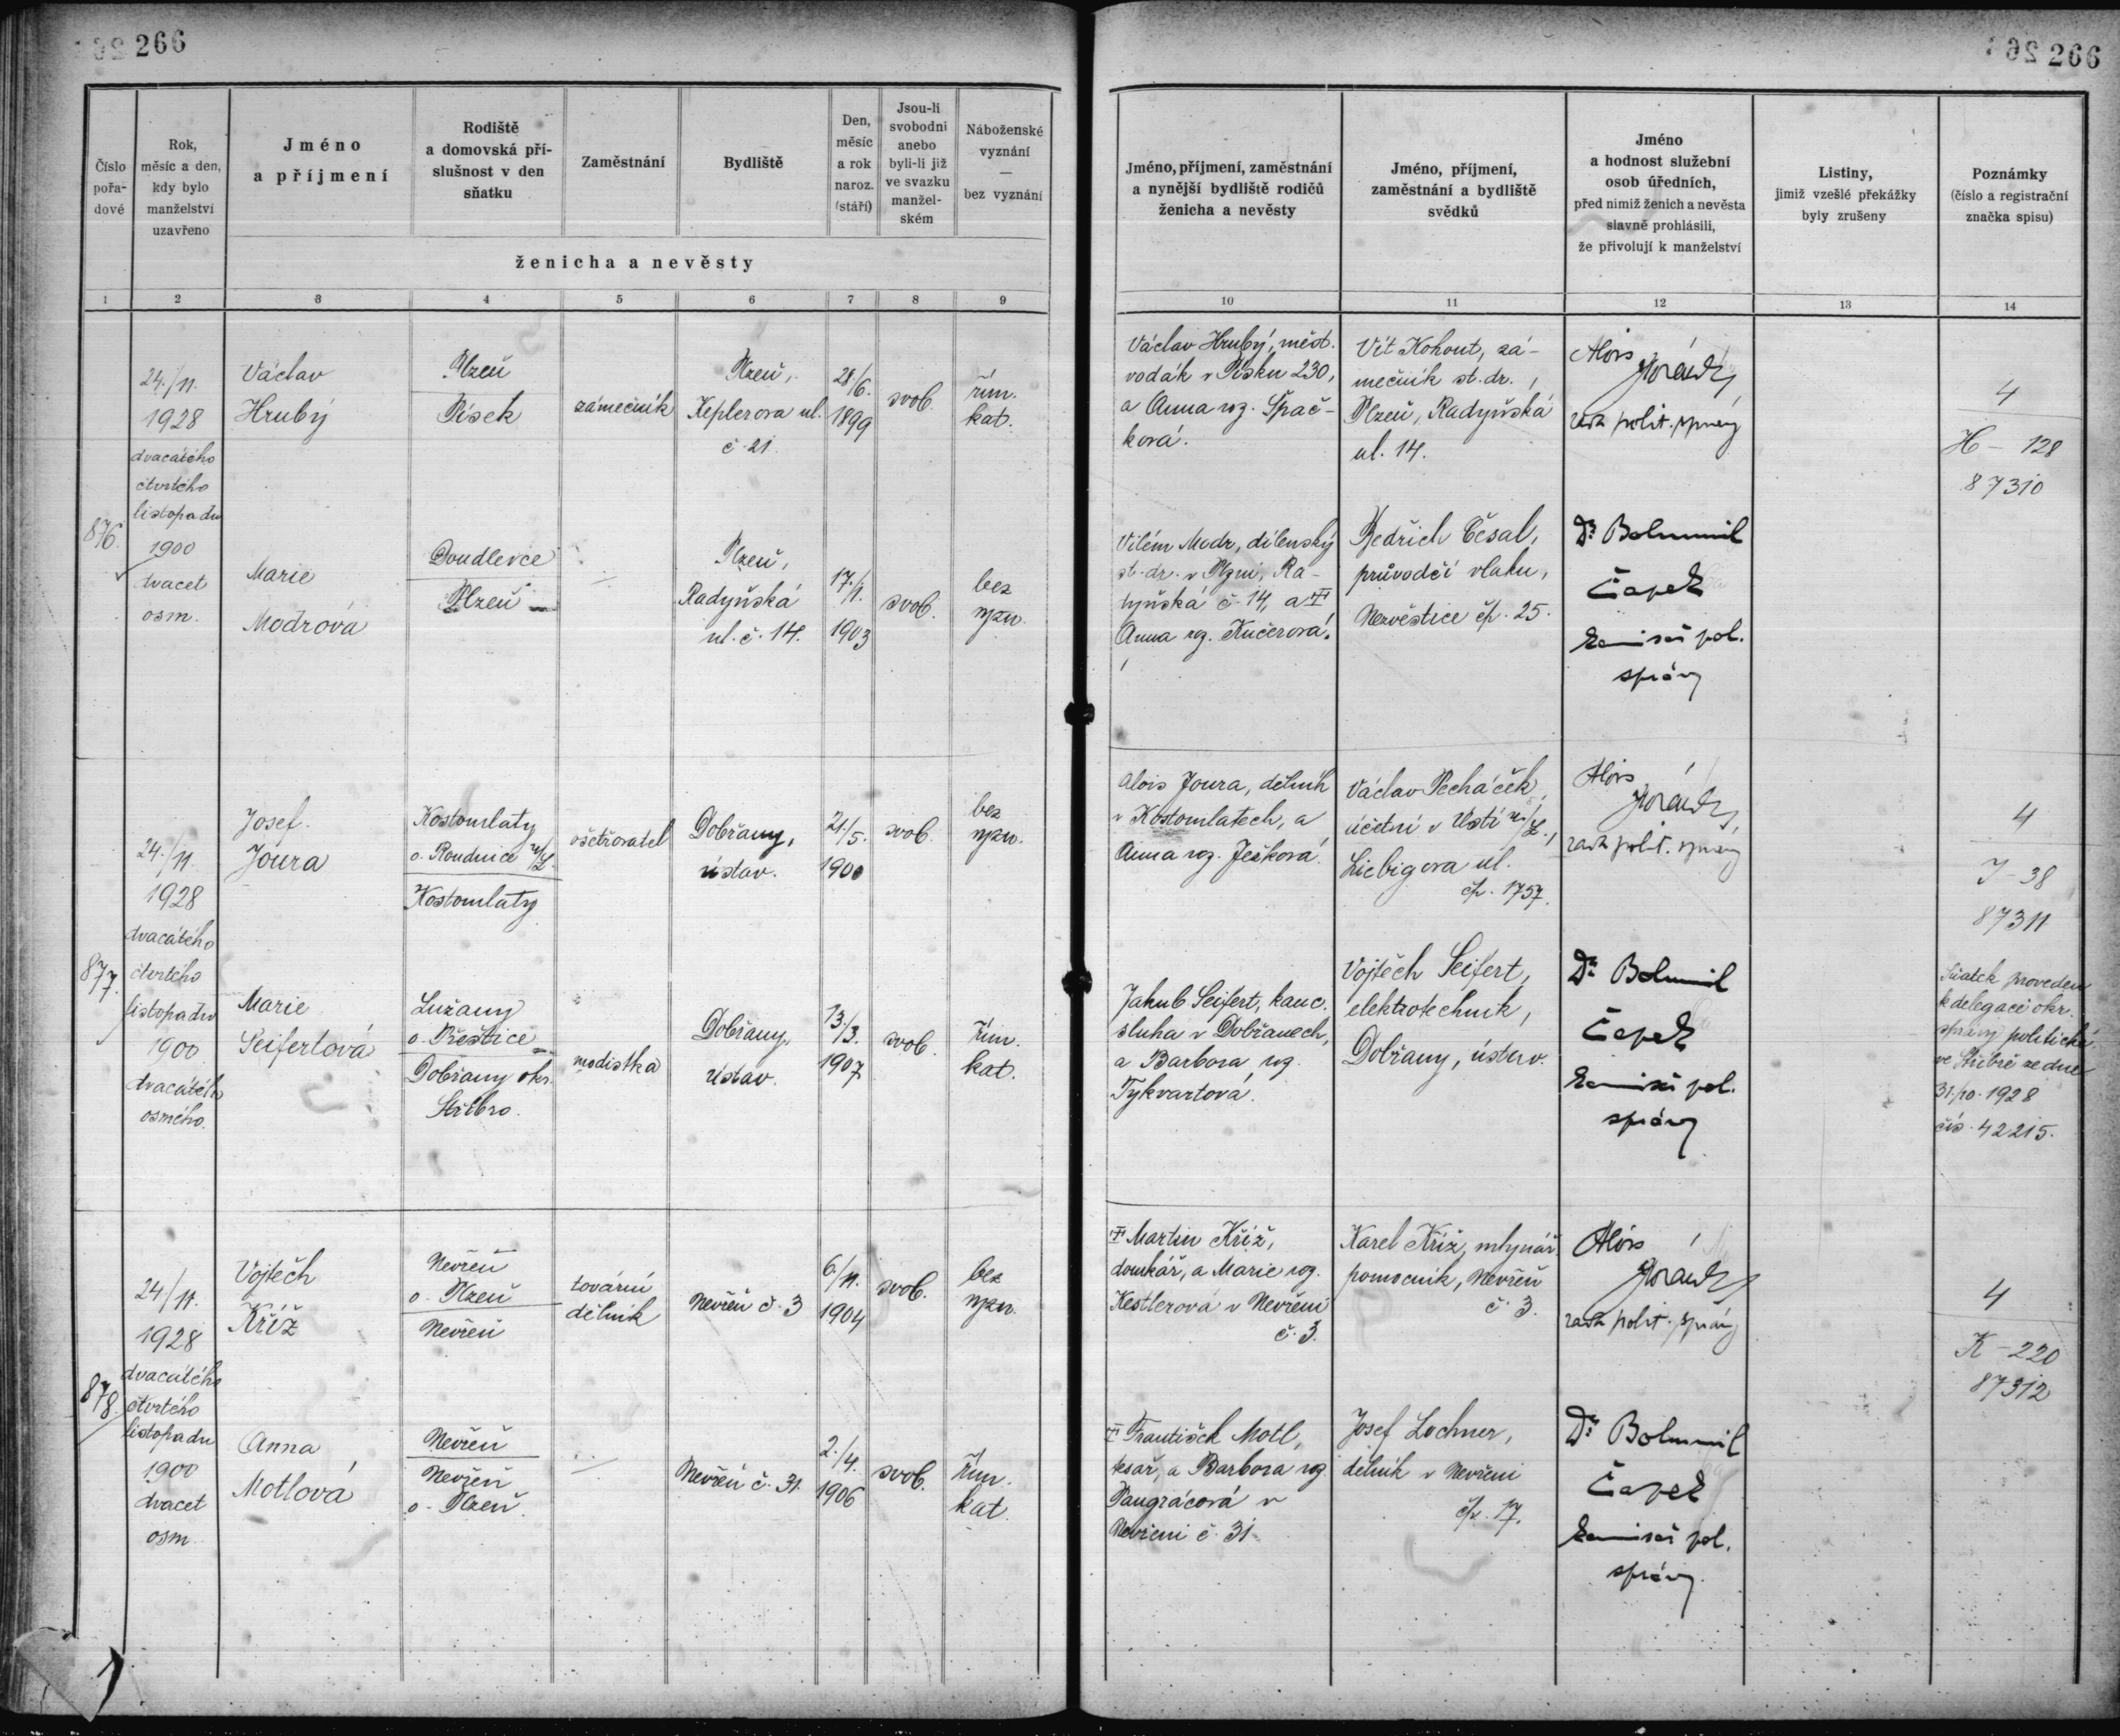 266
266
Číslo
pořa-
dové
Rok,
měsíc a den,
kdy bylo
manželství
uzavřeno
Jméno
a příjmení
Rodiště
a domovská pří-
slušnost v den
sňatku
Zaměstnání
Bydliště
Den,
měsíc
a rok
naroz.
(stáří)
Jsou-li
svobodni
anebo
byli-li již
ve svazku
manžel-
ském
Náboženské
vyznání
—
bez vyznání
ženicha a nevěsty
1 2 3 4 5 6 7 8 9
Jméno, příjmení, zaměstnání
a nynější bydliště rodičů
ženicha a nevěsty
Jméno, příjmení,
zaměstnání a bydliště
svědků
Jméno
a hodnost služební
osob úředních,
před nimiž ženich a nevěsta
slavně prohlásili,
že přivolují k manželství
Listiny,
jimiž vzešlé překážky
byly zrušeny
Poznámky
(číslo a registrační
značka spisu)
10 11 12 13 14
876.
24./11.
1928
dvacátého
čtvrtého
listopadu
1900
dvacet
osm.
Václav
Hrubý
Plzeň
Písek
zámečník
Plzeň,
Keplerova ul.
č. 21.
28/6.
1899
svob.
řím.
kat.
Václav Hrubý, měst.
vodák v Písku 230,
a Anna roz. Špač-
ková.
Vít Kohout, zá-
mečník st. dr.,
Plzeň, Radyňská
ul. 14.
Alois
rada polit. správy
4
H - 128
87310
Marie
Modrová
Doudlevce
Plzeň
Plzeň,
Radyňská
ul. č. 14.
17./1.
1903
svob.
bez
vyzn.
Vilém Modr, dílenský
st. dr. v Plzni, Ra-
dyňská č. 14, a
Anna roz. Kučerová.
Bedřich Česal,
průvodčí vlaku,
Nezvěstice čp. 25.
Dr Bohumil
Čapek
komisař pol.
správy
877.
24./11.
1928
dvacátého
čtvrtého
listopadu
1900
dvacátého
osmého.
Josef
Joura
Kostomlaty
o. Roudnice n/L.
Kostomlaty
ošetřovatel
Dobřany,
ústav.
21./5.
1900
svob.
bez
vyzn.
Alois Joura, dělník
v Kostomlatech, a
Anna roz. Ješková.
Václav Pecháček,
účetní v Ústí n/L.,
Liebigova ul.
čp. 1757.
Alois
rada polit. správy
4
J - 38
87311
Marie
Seifertová
Lužany
o. Přeštice
Dobřany okr.
Stříbro.
modistka
Dobřany,
ústav.
13./3.
1907
svob.
řím.
kat.
Jakub Seifert, kanc.
sluha v Dobřanech,
a Barbora roz.
Tykvartová.
Vojtěch Seifert,
elektrotechnik,
Dobřany, ústav.
Dr Bohumil
Čapek
komisař pol.
správy
Sňatek proveden
k delegaci okr.
správy politické
ve Stříbře ze dne
31./10. 1928
čís. 42215.
878.
24./11.
1928
dvacátého
čtvrtého
listopadu
1900
dvacet
osm.
Vojtěch
Kříž
Nevřeň
o. Plzeň
Nevřeň
tovární
dělník
Nevřeň č. 3
6./11.
1904
svob.
bez
vyzn.
Martin Kříž,
domkář, a Marie roz.
Kestlerová v Nevřeni
č. 3.
Karel Kříž, mlynář.
pomocník, Nevřeň
č. 3.
Alois
rada polit. správy
4
K - 220
87312
Anna
Motlová
Nevřeň
Nevřeň
o. Plzeň.
Nevřeň č. 31.
2./4.
1906
svob.
řím.
kat.
František Motl,
tesař, a Barbora roz.
Pangrácová v
Nevřeni č. 31.
Josef Lochner,
dělník v Nevřeni
čp. 17.
Dr Bohumil
Čapek
komisař pol.
správy